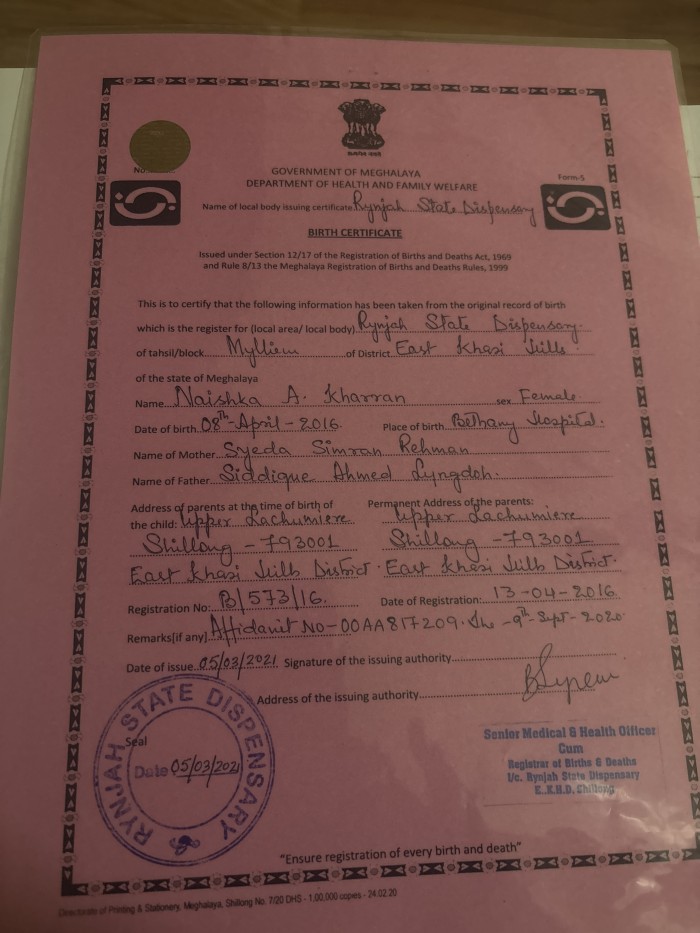 No
Form-5
GOVERNMENT OF MEGHALAYA
DEPARTMENT OF HEALTH AND FAMILY WELFARE
Name of local body issuing certificate Rynjah State Dispensary
BIRTH CERTIFICATE
Issued under Section 12/17 of the Registration of Births and Deaths Act, 1969
and Rule 8/13 the Meghalaya Registration of Births and Deaths Rules, 1999
This is to certify that the following information has been taken from the original record of birth
which is the register for (local area/ local body) Rynjah State Dispensary.
of tahsil/block Mylliem of District East Khasi Hills.
of the state of Meghalaya
Name Naishka A. Kharran sex Female.
Date of birth 08th-April-2016. Place of birth Bethany Hospital.
Name of Mother Syeda Simran Rehman
Name of Father Siddique Ahmed Lyngdoh.
Address of parents at the time of birth of Permanent Address of the parents:
the child: Upper Lachumiere Upper Lachumiere
Shillong - 793001 Shillong - 793001
East Khasi Hills District. East Khasi Hills District.
Registration No: B/573/16. Date of Registration: 13-04-2016.
Remarks[if any] Affidavit No-00AA817209. -9th-Sept-2020.
Date of issue 05/03/2021 Signature of the issuing authority
Address of the issuing authority
Seal
RYNJAH STATE DISPENSARY
Date 05/03/2021
Senior Medical & Health Officer
Cum
Registrar of Births & Deaths
I/c. Rynjah State Dispensary
E.K.H.D. Shillong
"Ensure registration of every birth and death"
Directorate of Printing & Stationery, Meghalaya, Shillong No. 7/20 DHS - 1,00,000 copies - 24.02.20